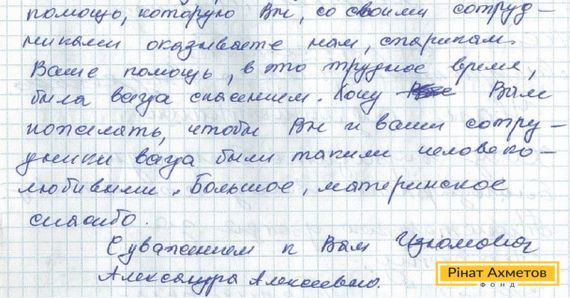 помощь, которую Вы, со своими сотруд-
никами оказываете нам, старикам.
Ваше помощь, в это трудное время,
была всгда спасением. Хочу Вам
пожелать, чтобы Вы и ваши сотру-
дники всгда были такими человеко-
любивыми. Большое, материнское
спасибо.
С уважением к Вам
Александра Алексеевна.
Рінат Ахметов
ФОНД